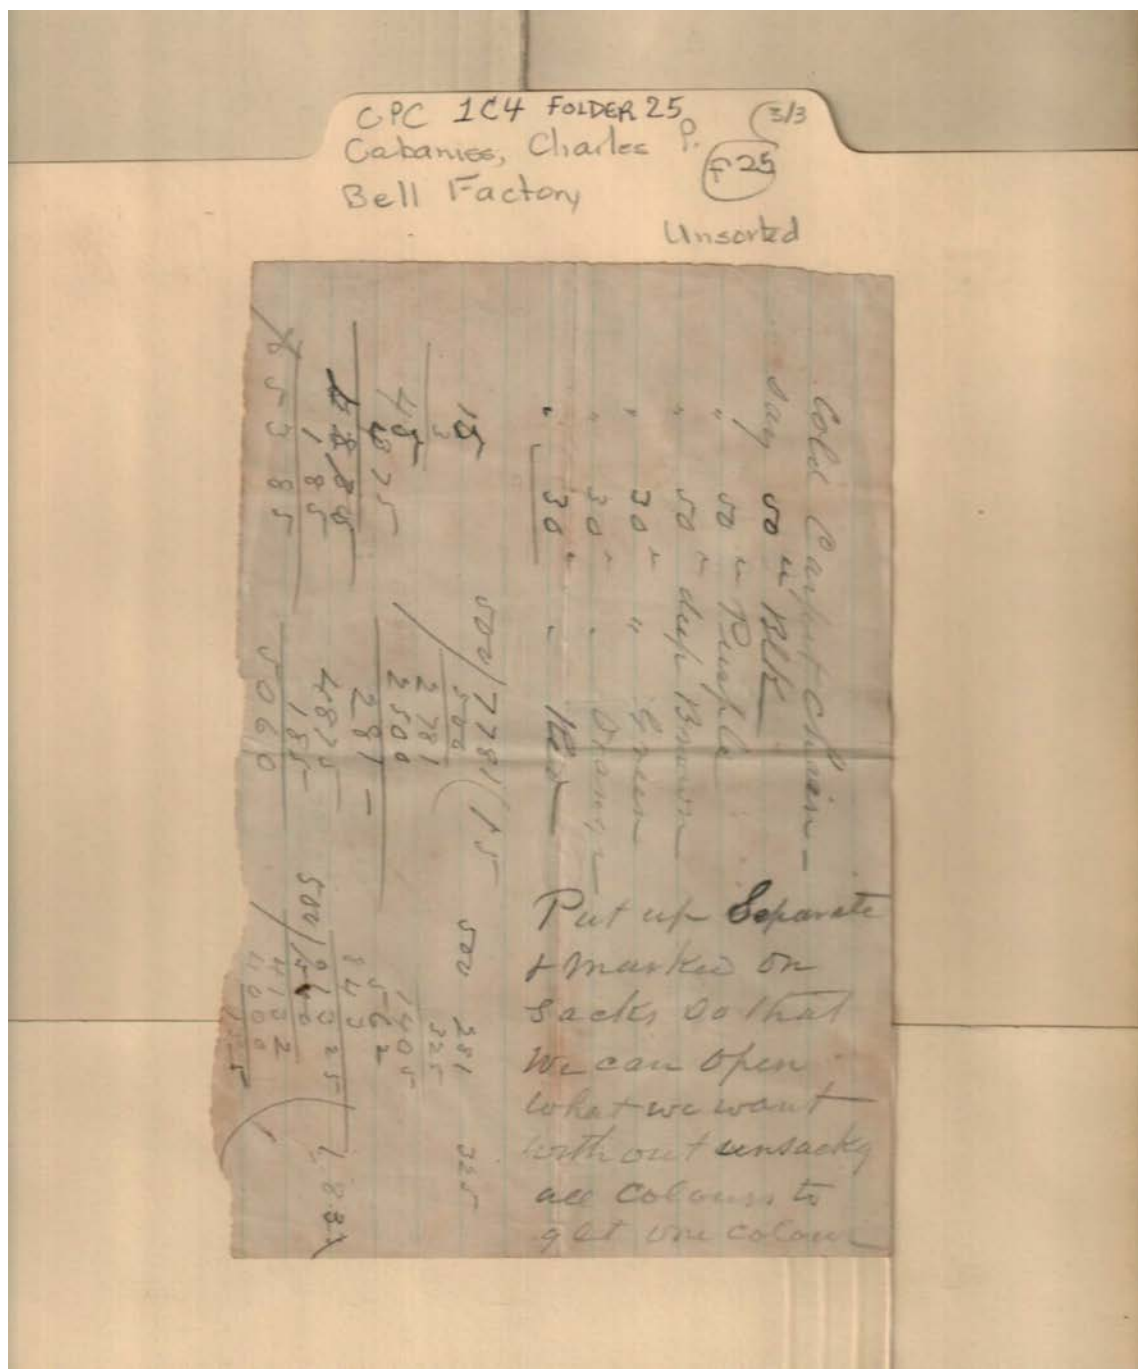 CPC 1C4 FOLDER 25 3/3
Cabaniss, Charles P. F 25
Bell Factory
Unsorted
Cold Carpet Chain -
Say 50 " Blk
" 50 " Purple
" 50 " deep Brown
" 30 " " Green
" 30 " "
" 30 " " Red
Put up Separate
& marked on
Sacks so that
We can open
what we want
without unsackg
all colours to
get one colour
15
3
45
4875
185
5385
500/7781(15
500
2781
2500
281 -
4875
185
5060
500
281
325
1405
562
843
4132
4000
325